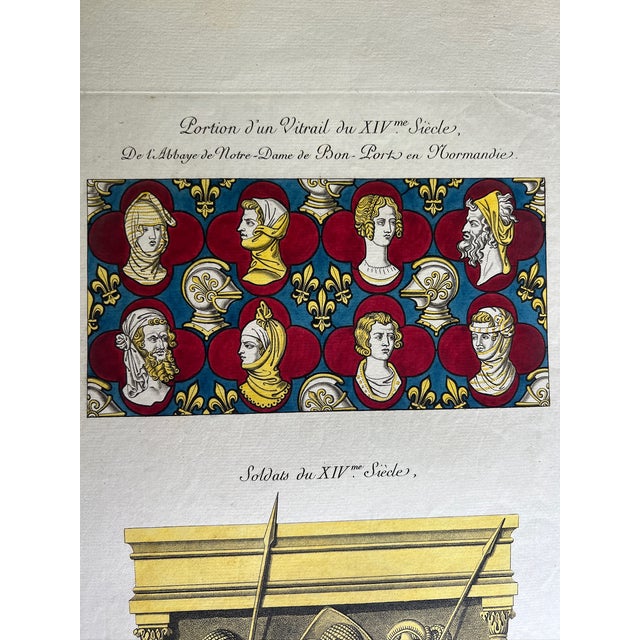 Portion d'un Vitrail du XIV.me Siècle,
De l'Abbaye de Notre-Dame de Bon-Port en Normandie.
Soldats du XIV.me Siècle,